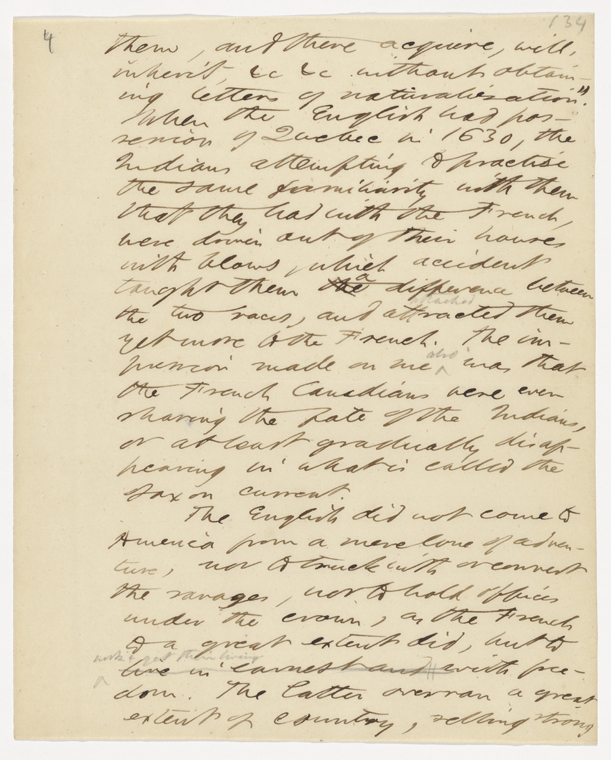 4
134
them, and there acquire, will,
inherit, &c &c without obtain-
ing letters of naturalization".
When the English had pos-
session of Quebec in 1630, the
Indians attempting to practise
the same familiarity with them
that they had with the French,
were driven out of their houses
with blows, which accident
taught them the a difference between
attached
the two races, and attracted them
yet more to the French. The im-
pression made on me also was that
the French Canadians were even
sharing the fate of the Indians,
or at least gradually disap-
pearing in what is called the
Saxon current.
The English did not come to
America from a mere love of adven-
ture, nor to truck with or convert
the savages, nor to hold offices
under the crown, as the French
to a great extent did, but to
live in earnest and with free-
dom. The latter overran a great
extent of country, selling strong